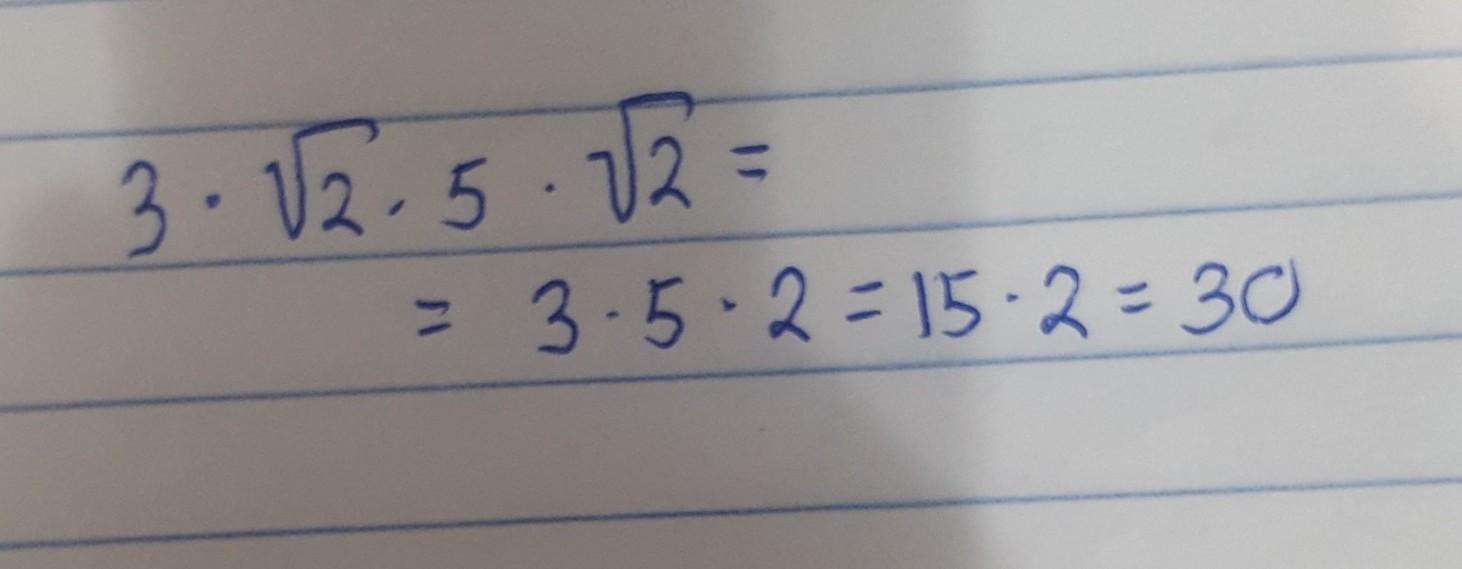 3 · √2 · 5 · √2 =
= 3 · 5 · 2 = 15 · 2 = 30